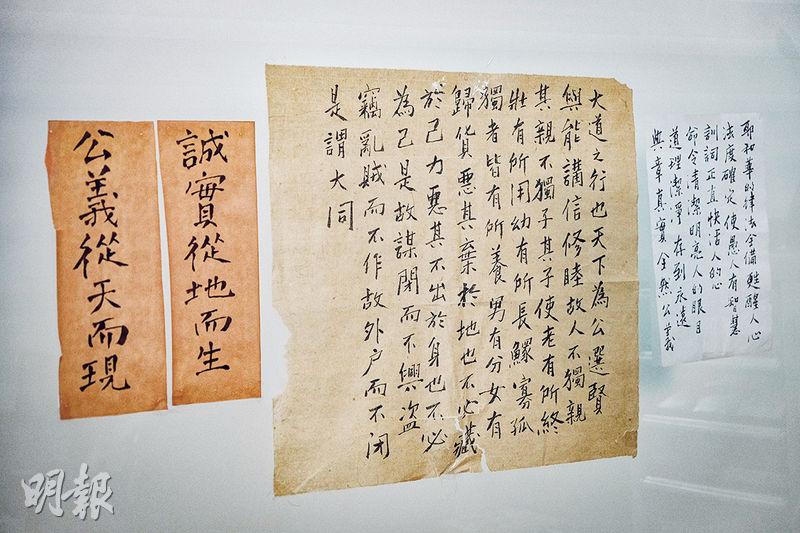 耶和華的律法全備甦醒人心
法度確定使愚人有智慧
訓詞正直快活人的心
命令清潔明亮人的眼目
道理潔淨存到永遠
典章真實全然公義
大道之行也天下為公選賢
與能講信修睦故人不獨親
其親不獨子其子使老有所終
壯有所用幼有所長鰥寡孤
獨者皆有所養男有分女有
歸貨惡其棄於地也不必藏
於己力惡其不出於身也不必
為己是故謀閉而不興盜
竊亂賊而不作故外戶而不閉
是謂大同
誠實從地而生
公義從天而現
明報